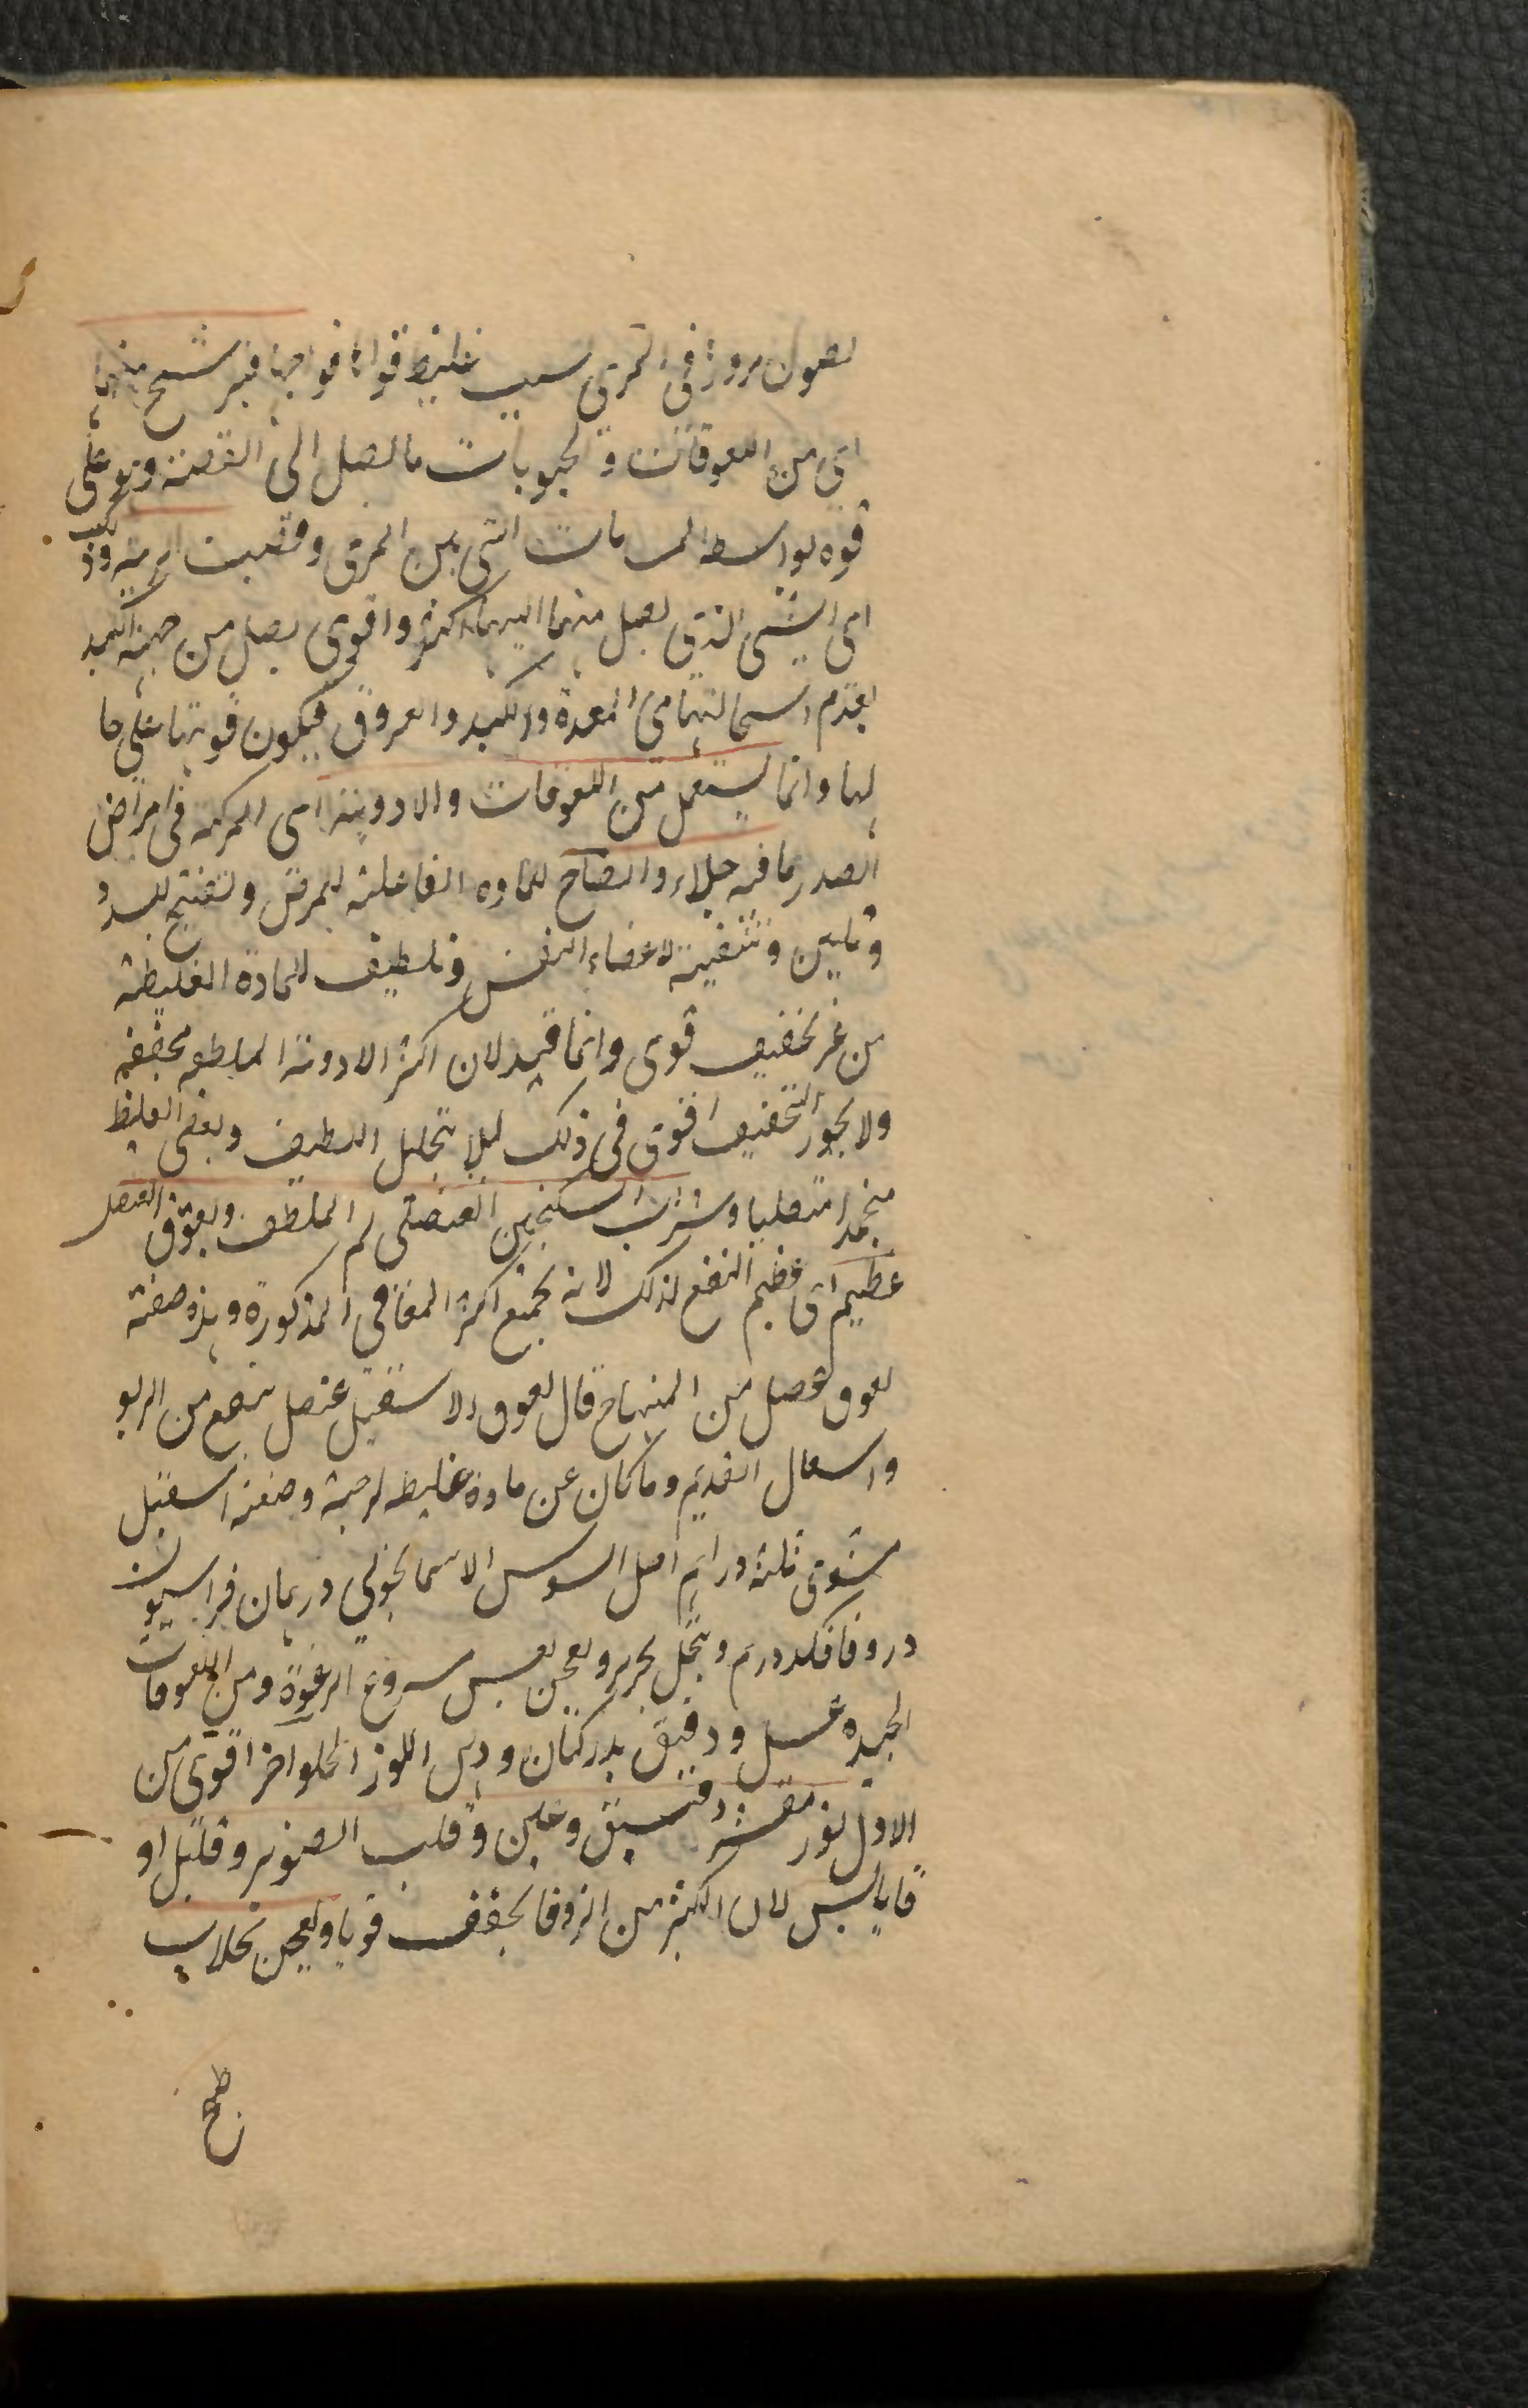 لطول مروره فى المرى بسبب غليظ قوامها فيرشح منها
اى من اللعوقات والحبوبات ما يصل الى القصبة وهو على
قوه بواسطه المسامات التى بين المرى وقصبت الريه وذلك
اى الشئ الذى يصل منهما اليهما اكثر واقوى يصل من جهة الكبد
لعدم استحالتهما فى المعدة والكبد والعروق فيكون قوتها على حا
لها وانما يستعمل من اللعوقات والادوية اى المركبة فى امراض
الصدر ما فيه جلاء وانضاج للماده الفاعلة للمرض وتفتيح للسدد
وتليين وتنقية لاعضاء النفس وتلطيف للمادة الغليظة
من غير تجفيف قوى وانما قيد لان اكثر الادوية الملطفه مجففه
ولا يجوز التجفيف القوى فى ذلك ليلا يتحلل اللطيف ويبقى الغليظ
منجمدا متصلبا وشراب السكنجبين العنصلى الملطف ولعوق العنصل
عظيم اى عظيم النفع لذلك لانه يجمع اكثر المنافع المذكورة وهذه صفته
لعوق عنصل من المنهاج قال لعوق الاسقيل عنصل ينفع من الربو
والسعال القديم وما كان عن مادة غليظه لزجة وصفته اسقيل
مشوى ثلثة دراهم اصل السوس الاسمانجونى درهمان فراسيون
وزوفا فكل درهم وينخل بحرير ويعجن بعسل منزوع الرغوة ومن اللعوقات
الجيده عسل ودقيق بذر كتان ودهن اللوز الحلو اخر اقوى من
الاول لوز مقشر وفستق وعلين وقلب الصنوبر وقليل زو
فا يابس لان الكثير من الزوفا يجفف قويا ويعجن بجلاب
طبخ